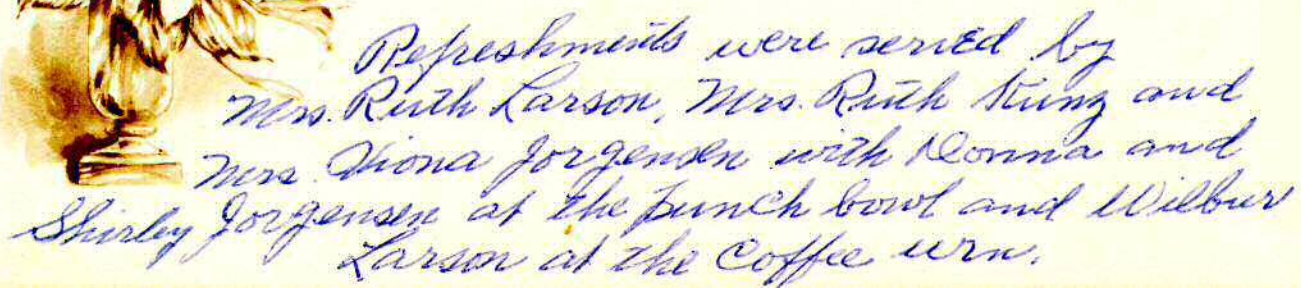 Refreshments were served by
Mrs. Ruth Larson, Mrs. Ruth Kunz and
Mrs. Viona Jorgensen with Donna and
Shirley Jorgensen at the punch bowl and Wilbur
Larson at the Coffee urn.